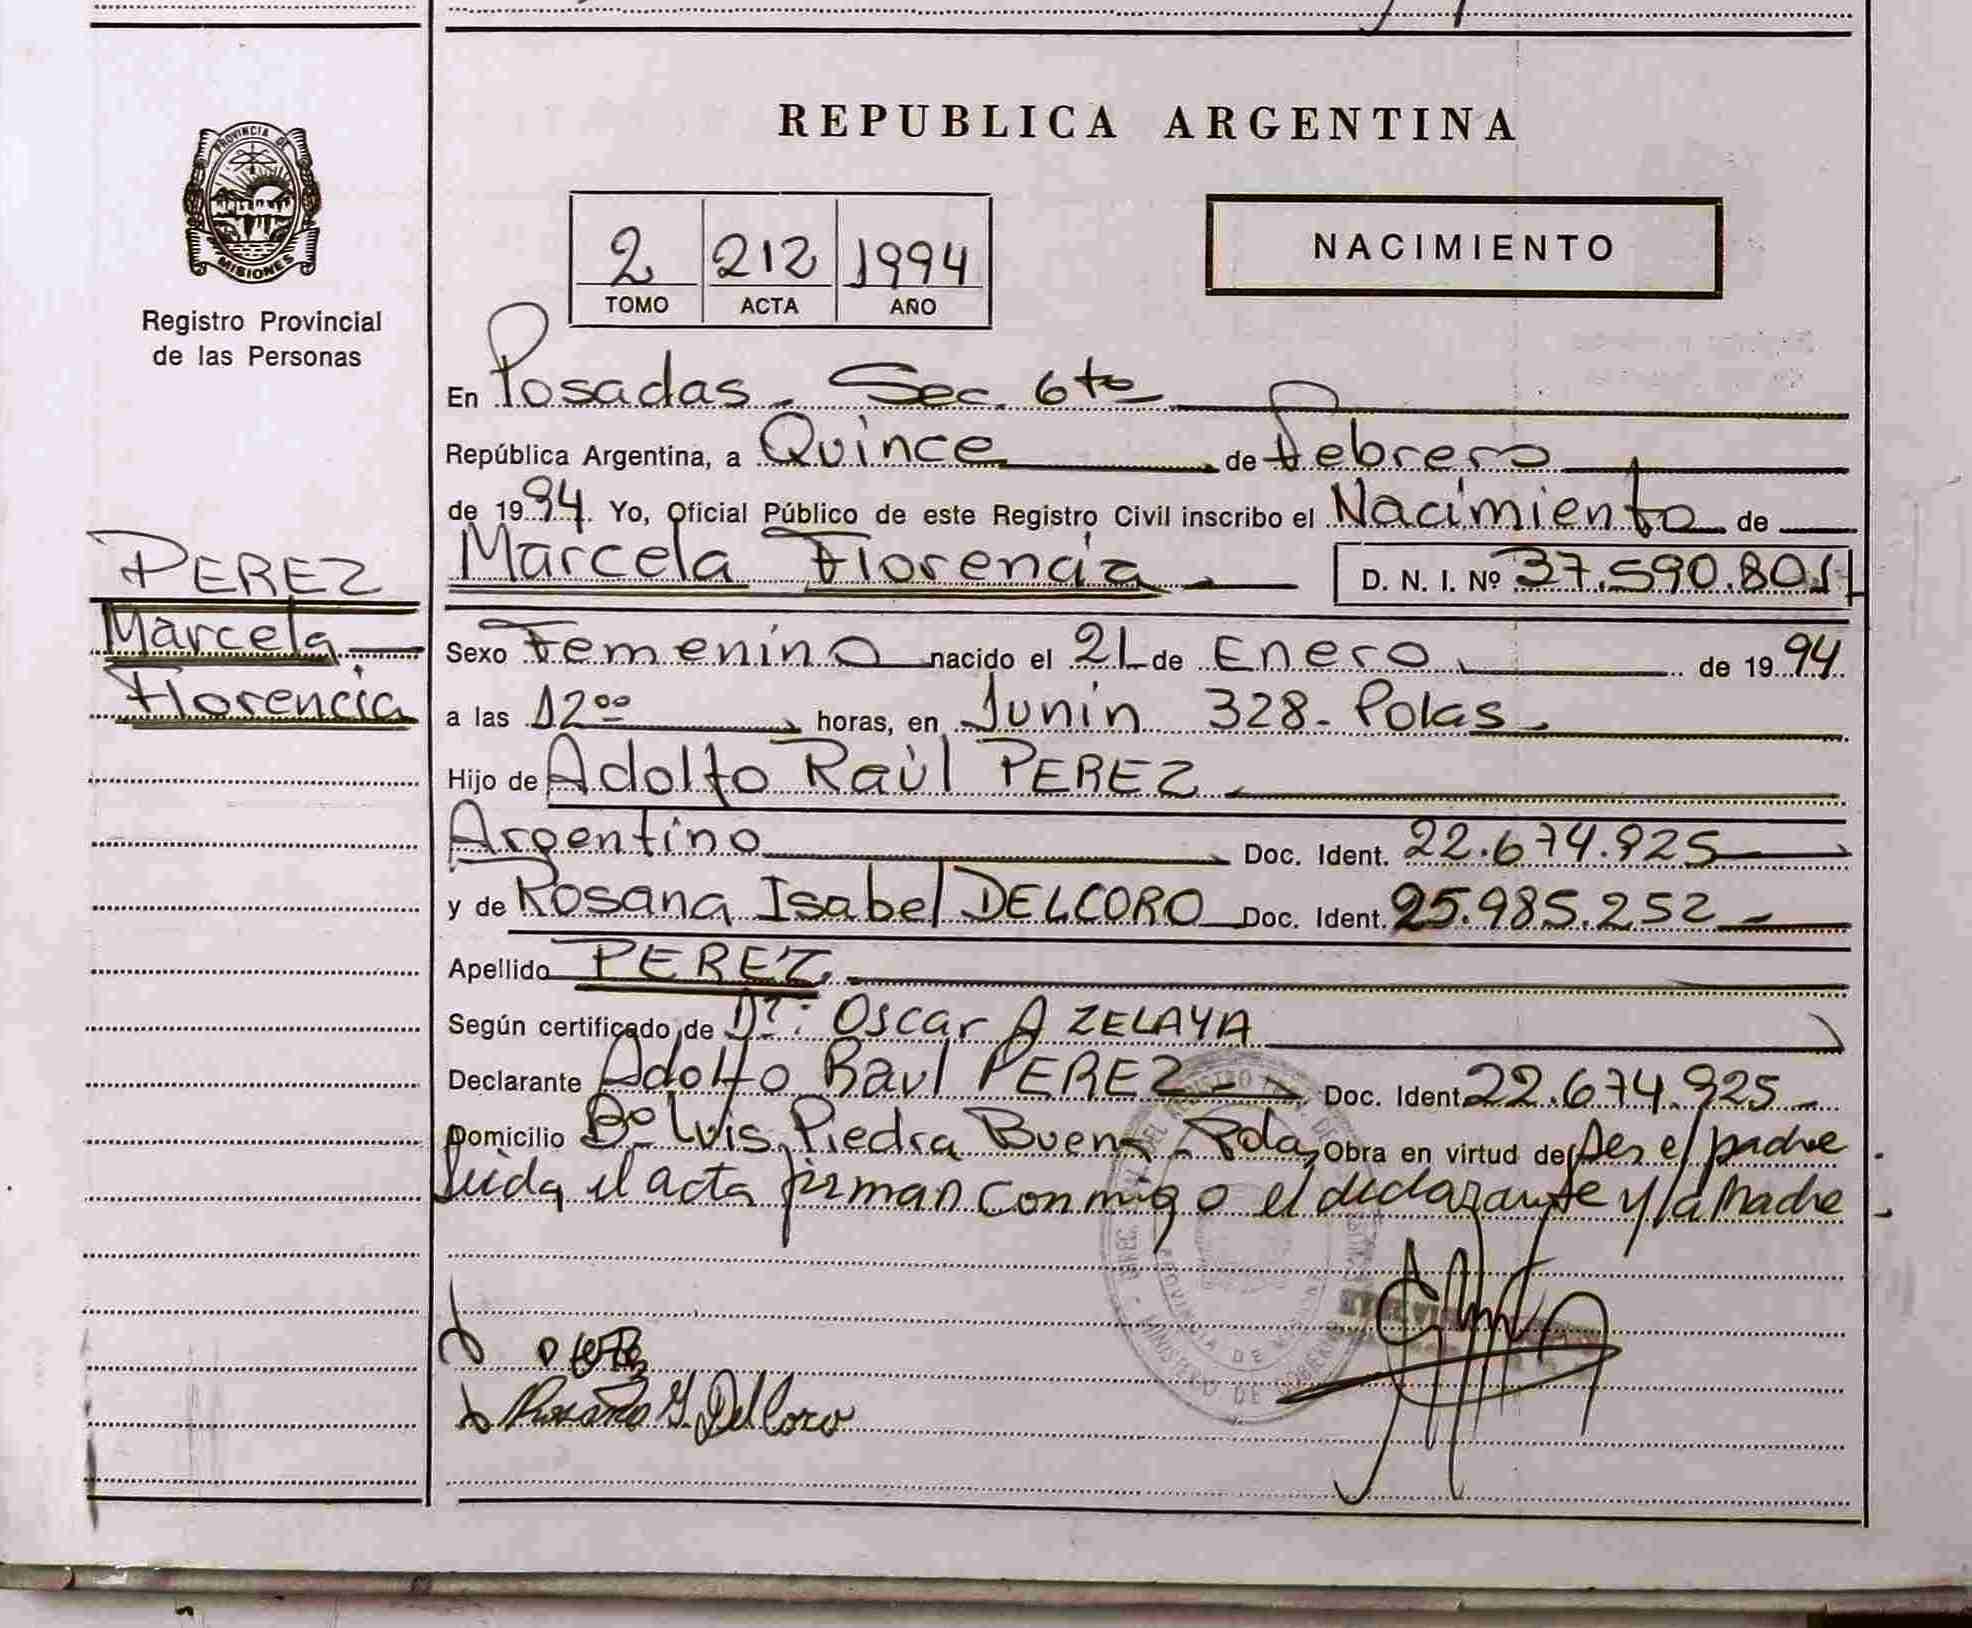 REPUBLICA ARGENTINA
PROVINCIA DE
MISIONES
Registro Provincial
de las Personas
2 212 1994
TOMO ACTA AÑO
NACIMIENTO
En Posadas - Sec. 6ta
República Argentina, a Quince de Febrero
de 1994. Yo, Oficial Público de este Registro Civil inscribo el Nacimiento de
Marcela Florencia D. N. I. Nº 37.590.801
PEREZ
Marcela
Florencia
Sexo Femenino nacido el 21 de Enero de 1994
a las 12⁰⁰ horas, en Junin 328 - Pdas.
Hijo de Adolfo Raúl PEREZ
Argentino Doc. Ident. 22.674.925
y de Rosana Isabel DELCORO Doc. Ident. 25.985.252
Apellido PEREZ
Según certificado de Dr.: Oscar A ZELAYA
Declarante Adolfo Raul PEREZ Doc. Ident. 22.674.925
Domicilio Bº Luis Piedra Buena - Pdas Obra en virtud de Ser el padre
Leida el acta firman conmigo el declarante y la Madre
PROVINCIA DE MISIONES
MINISTERIO DE GOBIERNO
Del Coro